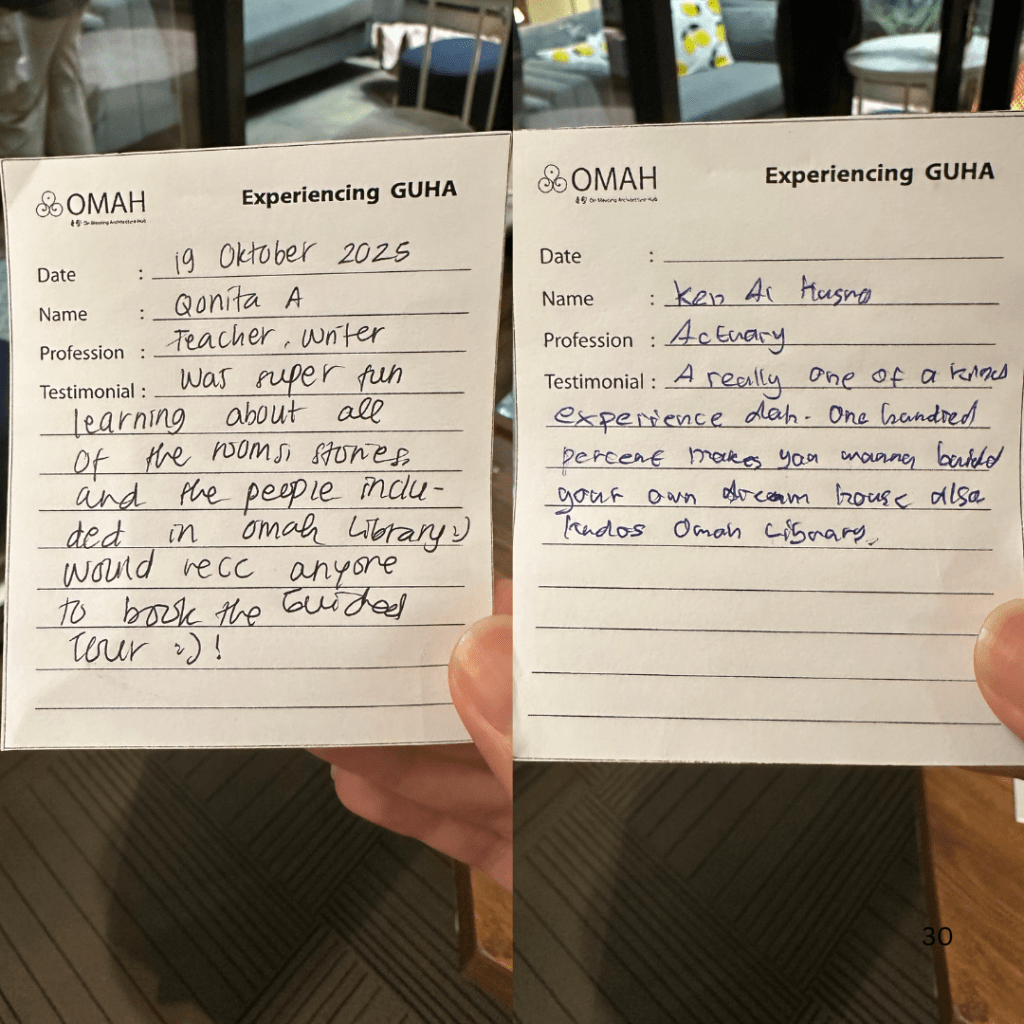 OMAH
Experiencing GUHA
Date : 19 Oktober 2025
Name : Qonita A
Profession : Teacher, Writer
Testimonial : Was super fun
learning about all
of the rooms, stories,
and the people inclu-
ded in Omah Library :)
would recc anyone
to book the Guided
Tour :) !
OMAH
Experiencing GUHA
Date :
Name : Ken Al Husna
Profession : Actuary
Testimonial : A really one of a kind
experience dah. One hundred
percent makes you wanna build
your own dream house also
kudos Omah Library.
30